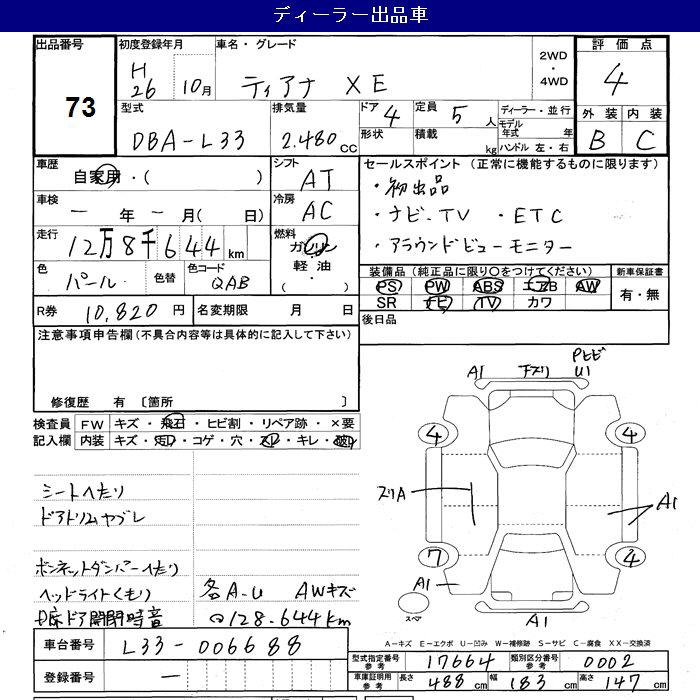 ディーラー出品車
出品番号 73
初度登録年月 H26 10月
車名・グレード ティアナ XE
2WD・4WD
評価点 4
外装 B 内装 C
型式 DBA-L33
排気量 2.480 CC
ドア 4 定員 5 人
形状 積載 kg
ディーラー・並行
モデル年式 年
ハンドル 左・右
車歴 自家用・( )
シフト AT
車検 ー 年 ー 月( 日)
冷房 AC
走行 12万8千644 km
燃料 ガソリン 軽油 ( ・ )
色 パール 色替 色コード QAB
R券 10,820 円 名変期限 月 日
セールスポイント (正常に機能するものに限ります)
・初出品
・ナビ、TV ・ETC
・アラウンドビューモニター
装備品 (純正品に限り○をつけてください) 新車保証書
PS PW ABS エアB AW 有・無
SR ナビ TV カワ
後日品
注意事項申告欄 (不具合内容等は具体的に記入して下さい)
修復歴 有 〔箇所 〕
検査員 FW キズ・飛石・ヒビ割・リペア跡・×要
記入欄 内装 キズ・・コゲ・穴・スレ・キレ・
シートへたり
ドアトリムヤブレ
ボンネットダンパーへたり
ヘッドライトくもり 各A-U AWキズ
ドア開閉時音 128.644km
A1 PヒビU1
4 4
スリA A1
7 4
A1 スペア A1
A-キズ E-エクボ U-凹み W-補修跡 S-サビ C-腐食 XX-交換済
車台番号 L33-006688
登録番号 ー
型式指定番号 参考 17664 類別区分番号 参考 0002
車庫証明用 参考 長さ 488 cm 幅 183 cm 高さ 147 cm